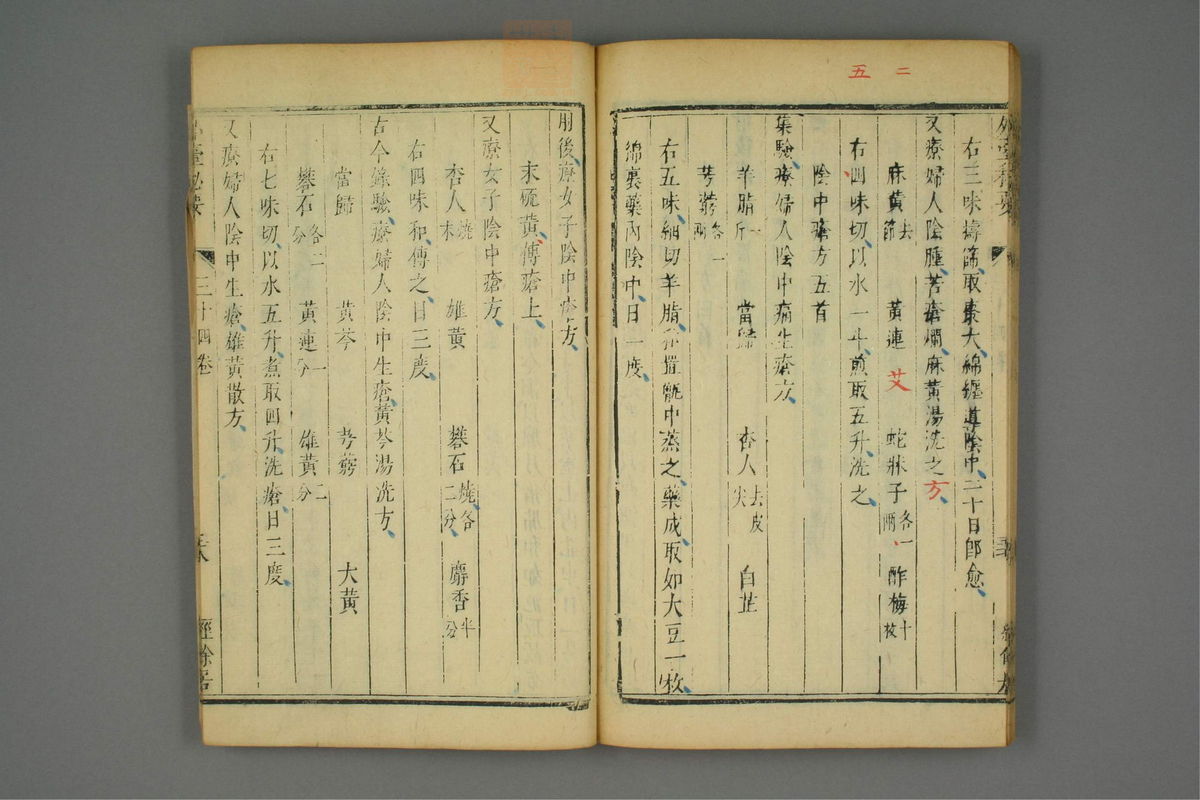 二 五
右三味擣篩取棗大綿纏導陰中二十日即愈
又療婦人陰腫苦瘡爛麻黃湯洗之方
麻黃去節 黃連 艾 蛇牀子各一兩 酢梅十枚
右四味切以水一斗煎取五升洗之
陰中瘡方五首
集驗療婦人陰中痛生瘡方
羊脂一斤 當歸 杏人去皮尖 白芷
芎藭各一兩
右五味細切羊脂和置甑中蒸之藥成取如大豆一枚
綿裹藥內陰中日一度
肘後療女子陰中瘡方
末硫黃傅瘡上
又療女子陰中瘡方
杏人燒末 雄黃 礬石燒各二分 麝香半分
右四味和傅之日三度
古今錄驗療婦人陰中生瘡黃芩湯洗方
當歸 黃芩 芎藭 大黃
礬石各二分 黃連一分 雄黃二分
右七味切以水五升煮取四升洗瘡日三度
又療婦人陰中生瘡雄黃散方
臺秘要 三十四卷 經餘居